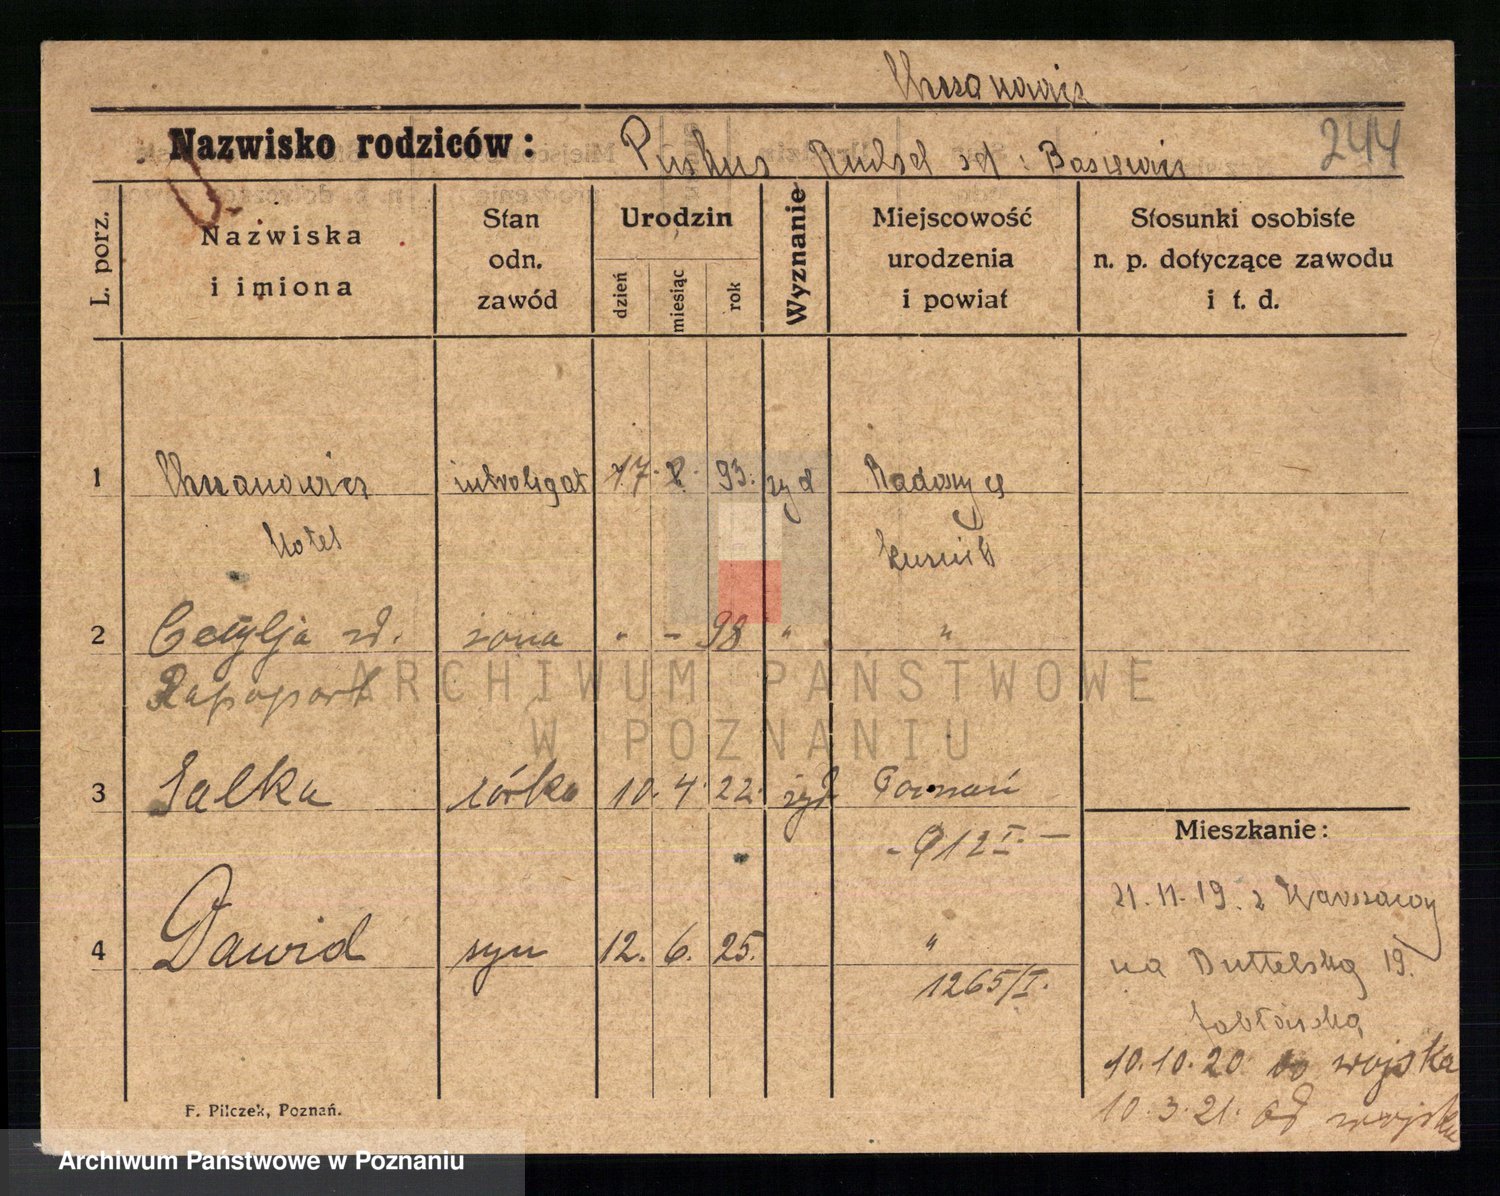 Nazwisko rodziców: Pinkus Rudsd zd: Basiewicz
244
L. porz.
Nazwiska i imiona
Stan odn. zawód
Urodzin
dzień
miesiąc
rok
Wyznanie
Miejscowość urodzenia i powiat
Stosunki osobiste n. p. dotyczące zawodu i t. d.
1 Chrzanowicz introligat 17. 8. 93. żyd Radoszyce
Motel
2 Cecylja zd. żona " - 98 " "
Rapoport
3 Salka córka 10. 4. 22. żyd Poznań
912 I. —
4 Dawid syn 12. 6. 25. "
1265/I.
Mieszkanie:
21.11.19. z Warszawy
na Buttelską 19.
10.10.20 do wojska
10.3.21. od wojska
F. Pilczek, Poznań.
ARCHIWUM PAŃSTWOWE
W POZNANIU
Archiwum Państwowe w Poznaniu